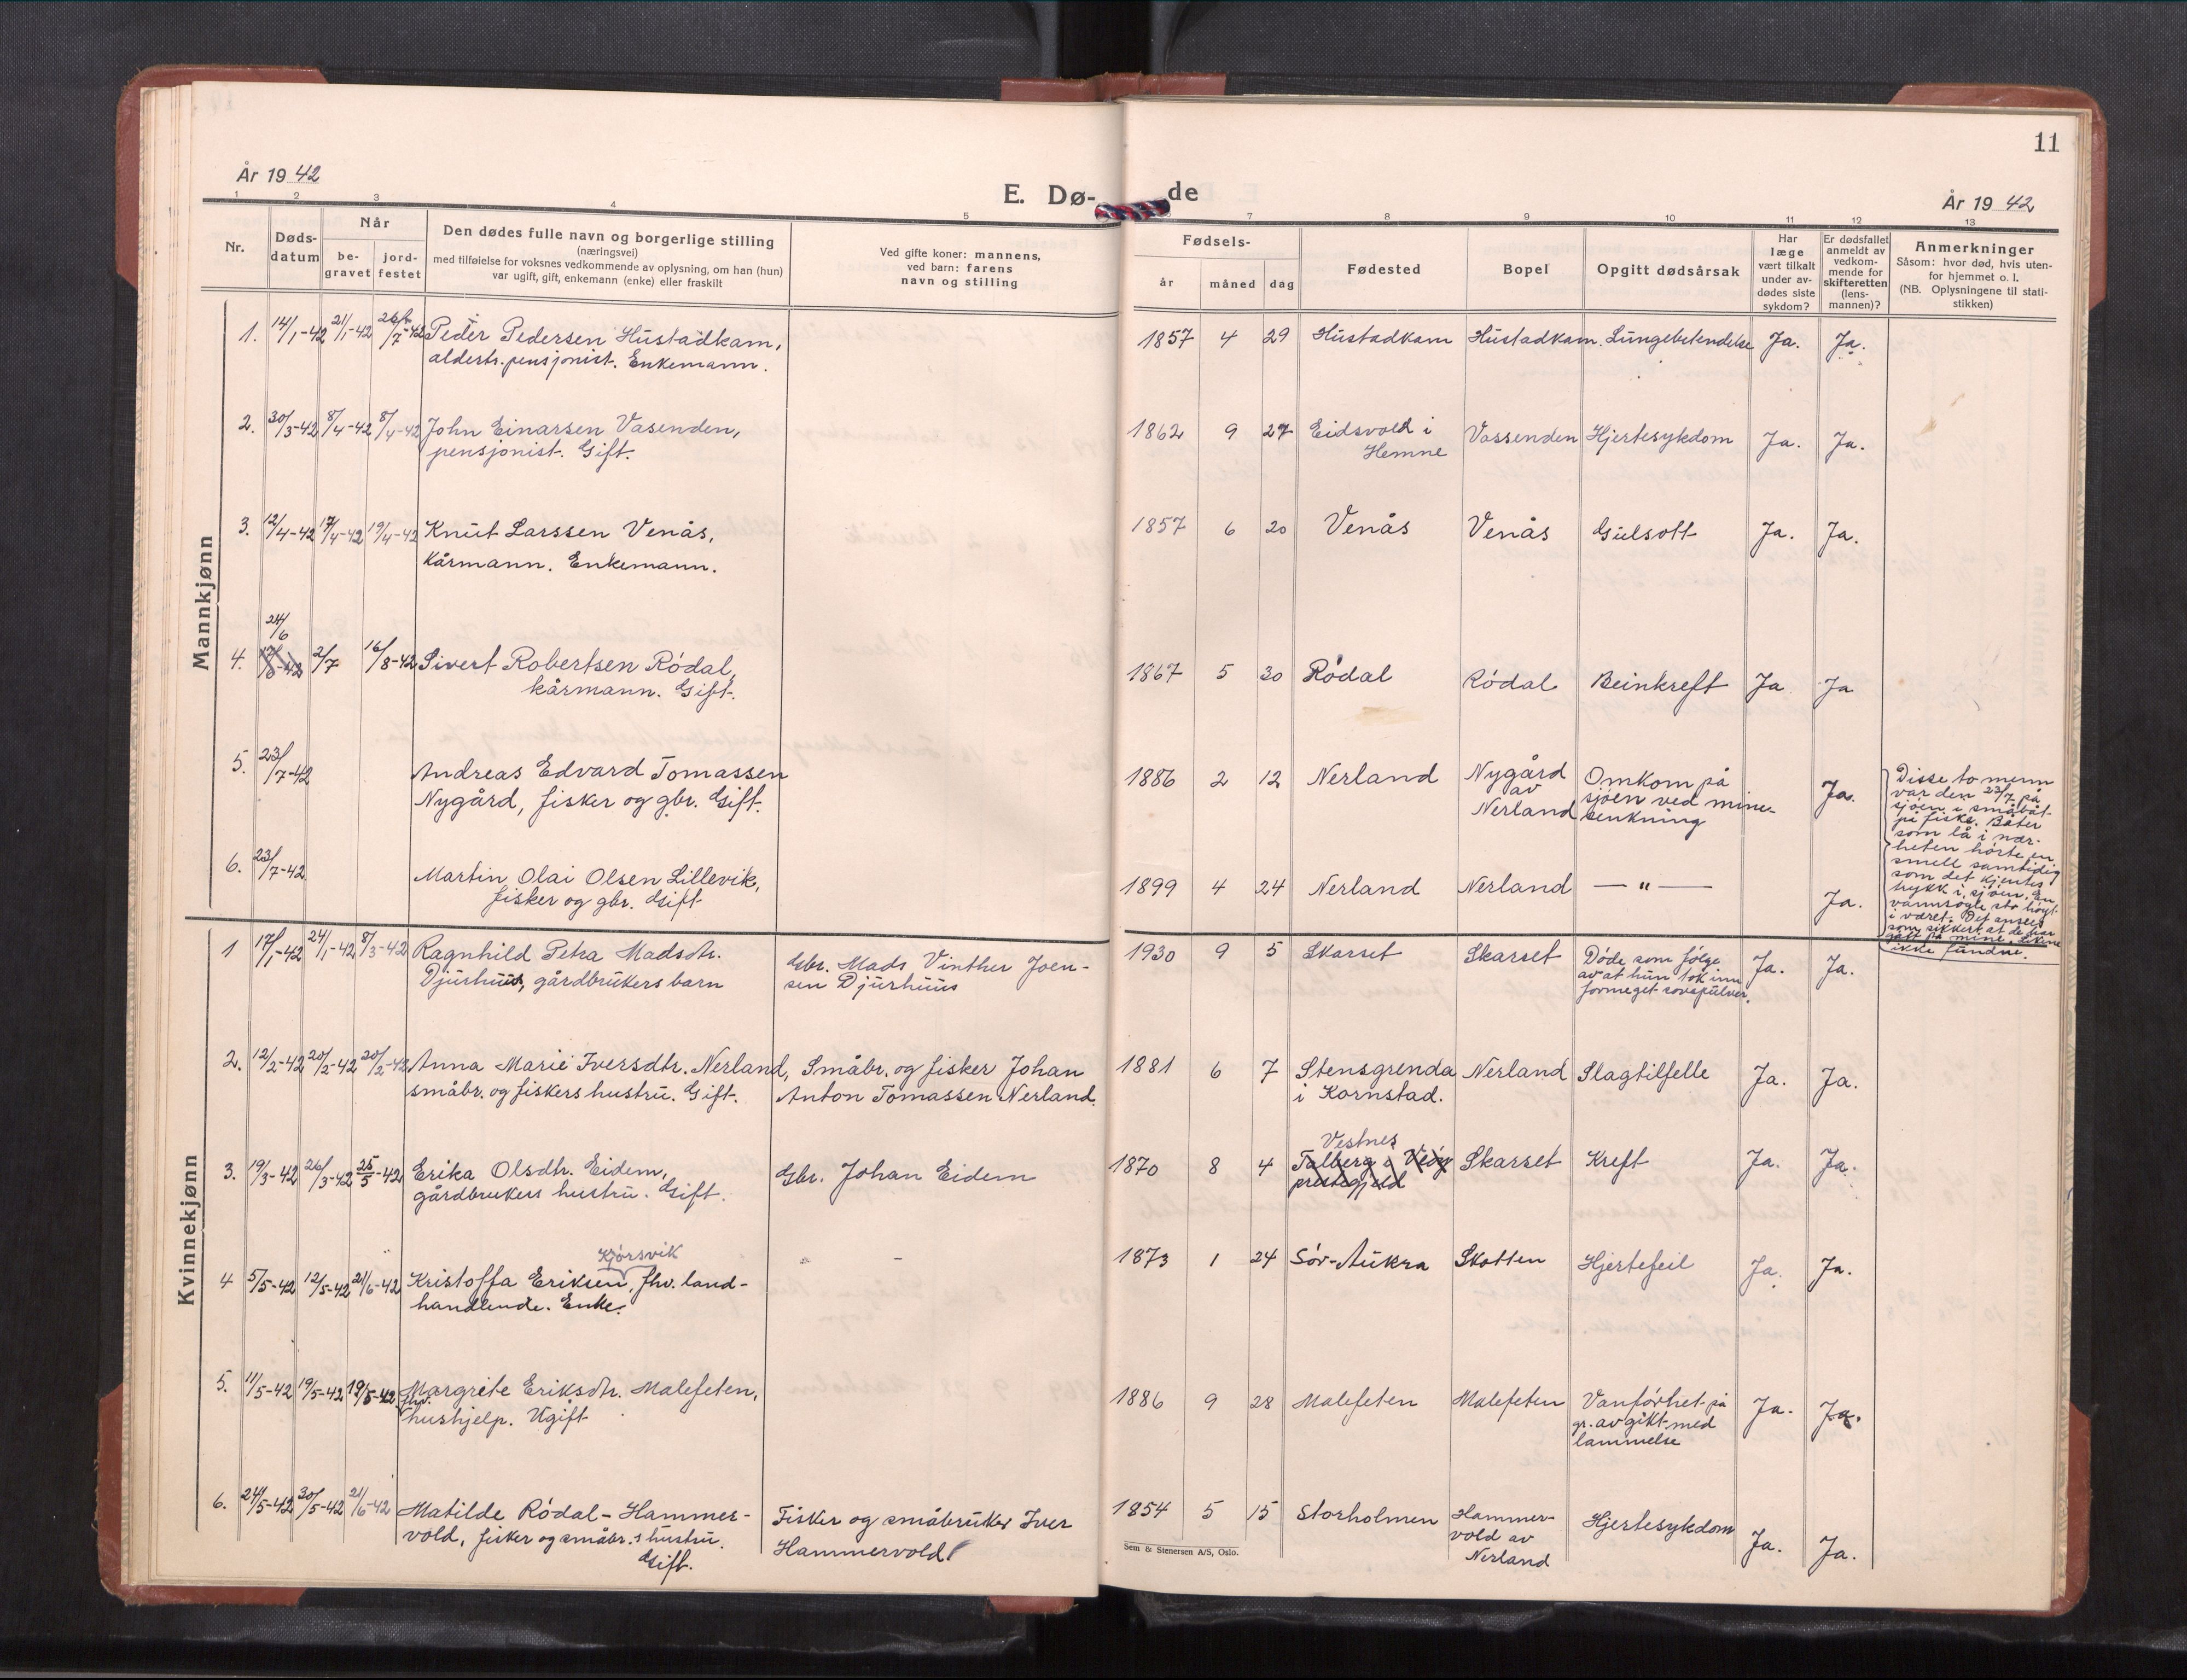 11
År 1942
E. Dø-
de
År 1942
1 2 3 4 5
7 8 9 10 11 12 13
Nr.
Døds-
datum
Når
be-
gravet
jord-
festet
Den dødes fulle navn og borgerlige stilling
(næringsvei)
med tilføielse for voksnes vedkommende av oplysning, om han (hun)
var ugift, gift, enkemann (enke) eller fraskilt
Ved gifte koner: mannens,
ved barn: farens
navn og stilling
Fødsels-
år måned dag
Fødested
Bopel
Opgitt dødsårsak
Har
læge
vært tilkalt
under av-
dødes siste
sykdom?
Er dødsfallet
anmeldt av
vedkom-
mende for
skifteretten
(lens-
mannen)?
Anmerkninger
Såsom: hvor død, hvis uten-
for hjemmet o. l.
(NB. Oplysningene til stati-
stikken)
Mannkjønn
1. 14/1-42 21/1-42 26/7-42 Peder Pedersen Hustadkam, 1857 4 29 Hustadkam Hustadkam. Lungebetendelse Ja. Ja.
alderstr.pensjonist. Enkemann.
2. 30/3-42 8/4-42 8/4-42 John Einarsen Vasenden, 1862 9 27 Eidsvold i Vassenden Hjertesykdom Ja. Ja.
pensjonist. Gift. Hemne
3. 12/4-42 17/4-42 19/4-42 Knut Larssen Venås, 1857 6 20 Venås Venås Gulsott Ja. Ja.
Kårmann. Enkemann.
24/6
4. 2/7 16/8-42 Sivert Robertsen Ródal, 1867 5 30 Ródal Ródal Beinkreft Ja Ja
kårmann. Gift.
5. 23/7-42 Andreas Edvard Tomassen 1886 2 12 Nerland Nygård Omkom på Ja.
Nygård, fisker og gbr. Gift. av sjöen ved mine-
Nerland senkning
6. 23/7-42 Martin Olai Olsen Lillevik, 1899 4 24 Nerland Nerland — " — Ja.
fisker og gbr. Gift
Disse to menn
var den 23/7 på
sjöen i småbåt
på fiske. Båter
som lå i nær-
heten hörte en
smell samtidig
som det kjentes
rykk i sjöen. En
vannsöyle sto höyt
i været. Det ansees
som sikkert at de har
gått på mine. Likene
ikke fundne.
Kvinnekjønn
1 17/1-42 24/1-42 8/3-42 Ragnhild Petra Madsdtr. Gbr. Mads Vinther Joen- 1930 9 5 Skarset Skarset Döde som fölge Ja. Ja.
Djurhuus, gårdbrukers barn sen Djurhuus av at hun tok inn
formeget sovepulver.
2. 12/2-42 20/2-42 20/2-42 Anna Marie Iversdtr. Nerland, Småbr. og fisker Johan 1881 6 7 Stensgrenda Nerland Slagtilfelle Ja. Ja.
småbr. og fiskers hustru. Gift. Anton Tomassen Nerland. i Kornstad.
Vestnes
3. 19/3-42 26/3-42 25/5-42 Erika Olsdtr. Eidem, Gbr. Johan Eidem 1870 8 4 Talberg i Veöy Skarset Kreft Ja. Ja.
gårdbrukers hustru. Gift. prestegjeld
Kjörsvik
4 5/5-42 12/5-42 21/6-42 Kristoffa Eriksen, fhv. land- 1873 1 24 Sör-Aukra Skotten Hjertefeil Ja. Ja.
handlende. Enke.
5. 11/5-42 19/5-42 19/5-42 Margrete Eriksdtr. Malefeten, 1886 9 28 Malefeten Malefeten Vanförhet på Ja. Ja.
fhv. hushjelp. Ugift gr. av gikt med
lammelse
6. 24/5-42 30/5-42 21/6-42 Matilde Ródal-Hammer- Fisker og småbruker Iver 1854 5 15 Storholmen Hammer- Hjertesykdom Ja. Ja.
vold, fisker og småbr.s hustru. Hammervold vold av
Gift. Nerland
Sem & Stenersen A/S, Oslo.